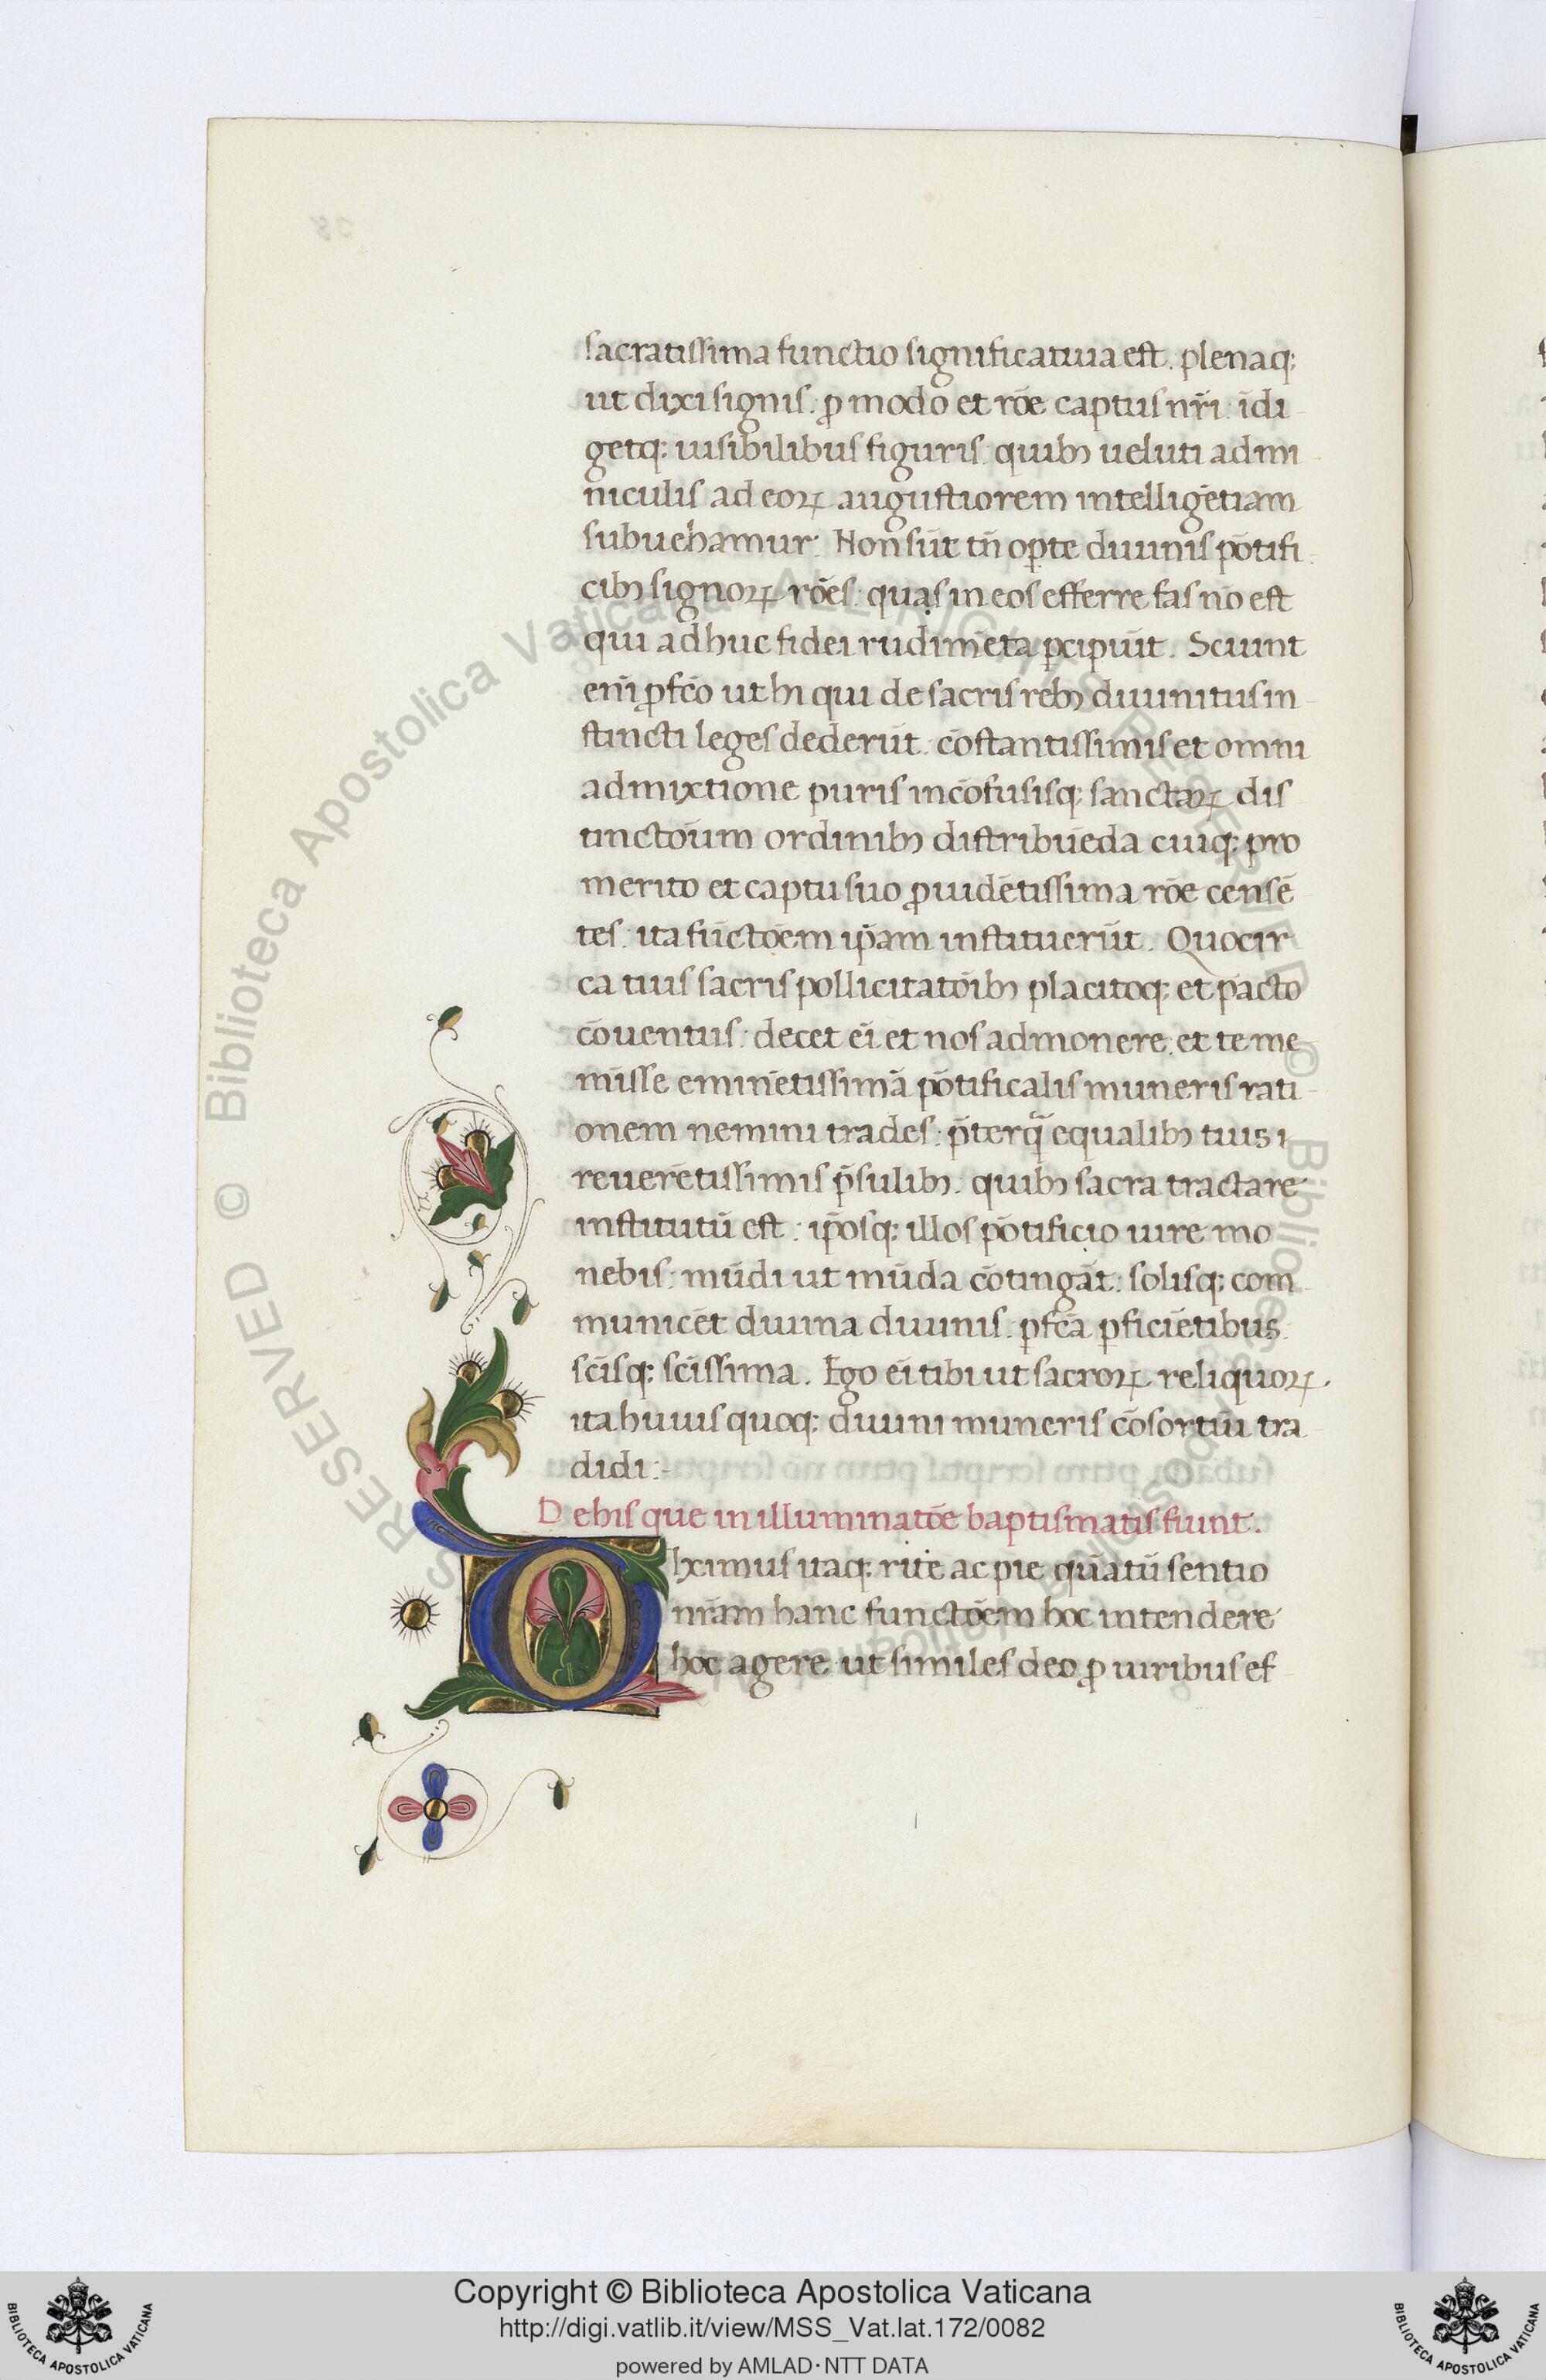 sacratissima functio significatiua est. plenaq;
ut dixi signis. ꝓ modo et rōe captus nr̄i. īdi
getq; uisibilibus figuris. quibꝫ ueluti admi
niculis ad eoꝝ augustiorem intelligētiam
subuehamur. Non sūt tn̄ oꝑte diuinis pōtifi
cibꝫ signoꝝ rōes. quas in eos efferre fas nō est
qui adhuc fidei rudimēta ꝑcipiūt. Sciunt
eni̅ ꝓfc̄o ut hi qui de sacris rebꝫ diuinitus in
stincti leges dederūt. cōstantissimis et omni
admixtione puris incōfusisq; sanctaꝝ dis
tinctōium ordinibꝫ distribuēda cuiq; pro
merito et captu suo ꝓuidētissima rōe censē
tes. ita fūctōem ip̄am instituerūt. Quocir
ca tuis sacris pollicitatōibꝫ placitoq; et pacto
cōuentus. decet ei̅ et nos admonere. et te me
misse eminētissimā pōtificalis muneris rati
onem nemini trades. p̄terq̄ equalibꝫ tuis ı
reuerētissimis p̄sulibꝫ. quibꝫ sacra tractare
institutū est. ip̄osq; illos pōtificio iure mo
nebis. mūdi ut mūda cōtingāt. solisq; com
municēt diuina diuinis. ꝑfc̄a ꝑficiētibus
sc̄isq; sc̄issima. Ego ei̅ tibi ut sacroꝝ reliquoꝝ.
ita huius quoq; diuini muneris cōsortiū tra
didi:-
De his que in illuminatōe baptismatis fiunt.
Diximus itaq; rite ac pie quātū sentio
nr̄am hanc functōem hoc intendere
hoc agere ut similes deo ꝓ uiribus ef
Copyright © Biblioteca Apostolica Vaticana
http://digi.vatlib.it/view/MSS_Vat.lat.172/0082
powered by AMLAD·NTT DATA
BIBLIOTECA APOSTOLICA VATICANA
BIBLIOTECA APOSTOLICA VATICANA